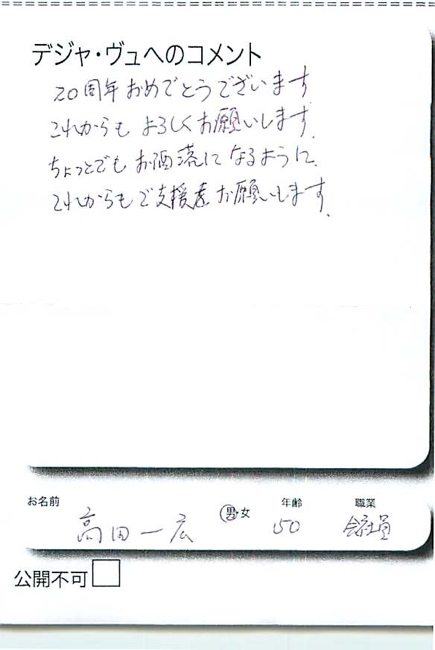 デジャ・ヴュへのコメント
20周年おめでとうございます
これからもよろしくお願いします。
ちょっとでもお洒落になるように、
これからもご支援をお願いします。
お名前 男・女 年齢 職業
高田一広 50 会社員
公開不可